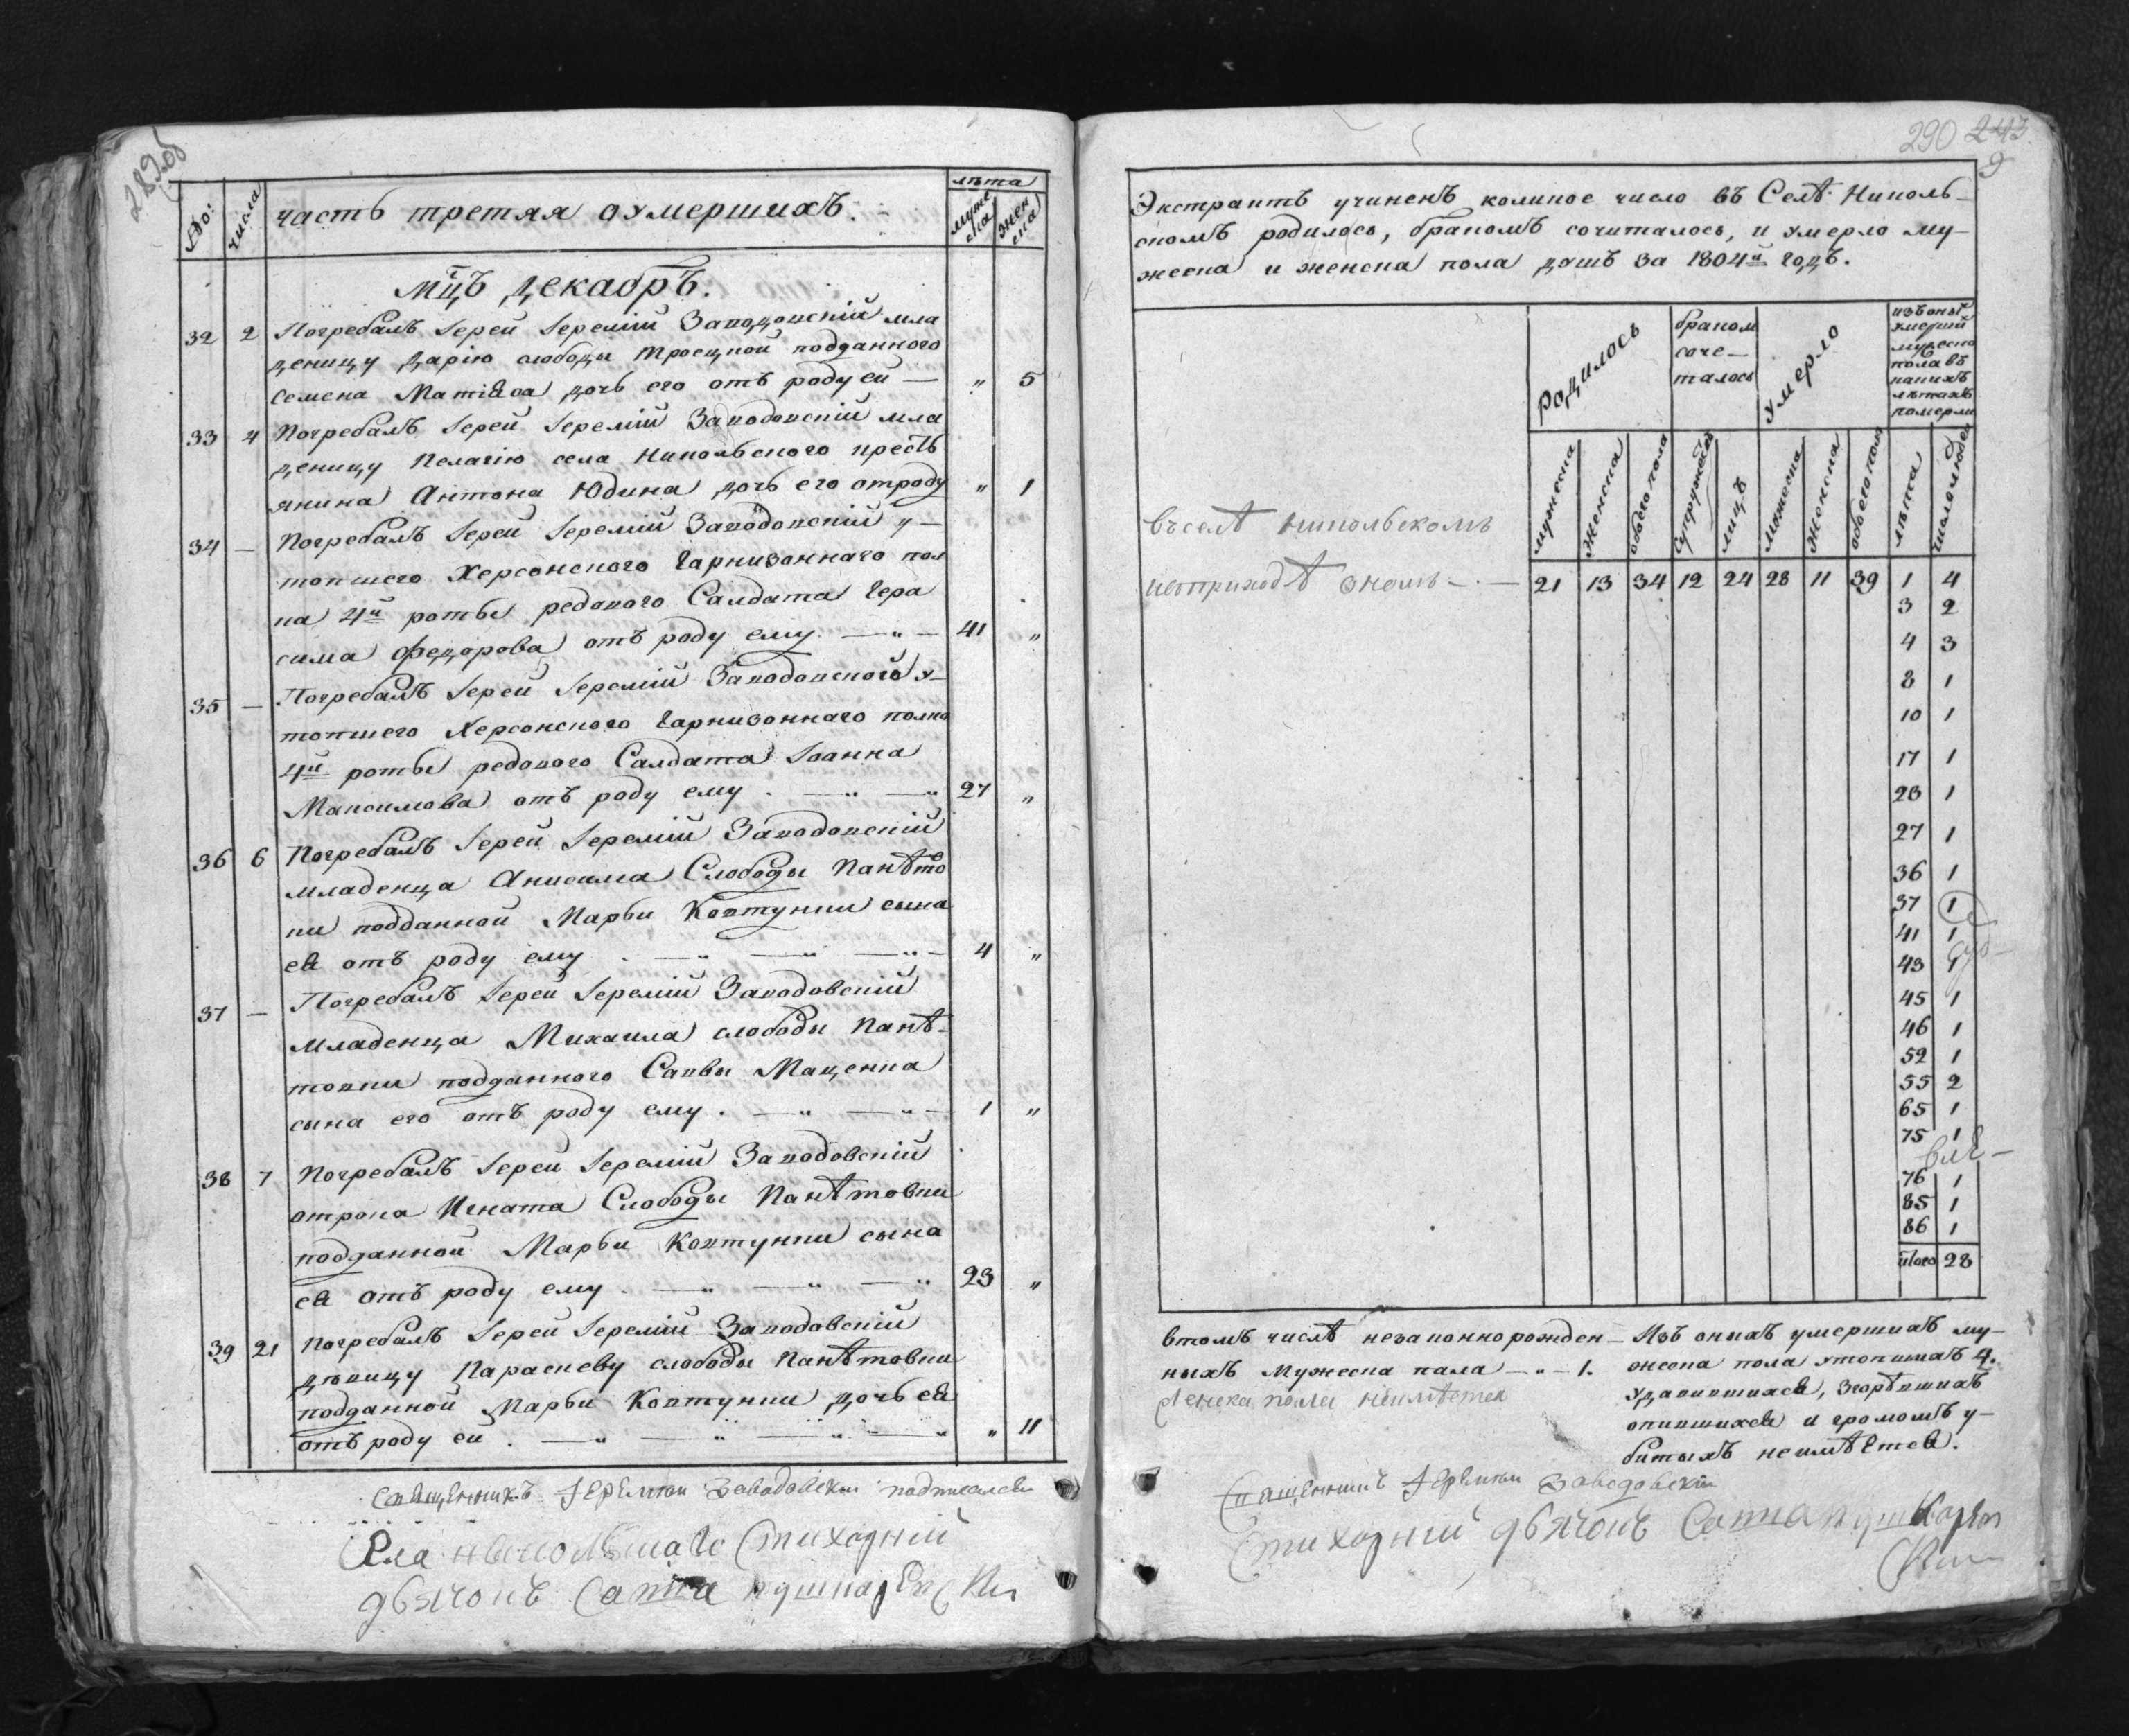 289об
№: числа часть третяя оумершихъ. лѣта мужеска женска
мцъ декабръ.
32 2 Погребалъ Іерей Іеремій Заводовскій мла
деницу Дарію слободы троецкой подданного
семена Матвѣева дочь его отъ роду ей — „ 5
33 4 Погребалъ Іерей Іеремій Заводовскій мла
деницу Пелагію села Никольского крестъ
янина Антона Юдина дочь его отроду „ 1
34 — Погребалъ Іерей Іеремій Заводовскій у-
топшего Херсонского Гарнизоннаго пол
ка 4й роты редового Салдата Гера
сима Федорова отъ роду ему — „ — 41 „
35 — Погребалъ Іерей Іеремій Заводовского у-
топшего Херсонского Гарнизоннаго полка
4й роты редового Салдата Іоанна
Максимова отъ роду ему . — „ — „ 27 „
36 6 Погребалъ Іерей Іеремій Заводовскій
младенца Анисима Слободы Панѣтов
ки подданной Марьи Ковтунки сына
ея отъ роду ему . — „ — „ — „ — 4 „
37 — Погребалъ Іерей Іеремій Заводовскій
младенца Михаила слободы Панѣ-
товки подданного Саввы Маценка
сына его отъ роду ему . — „ — „ — 1 „
38 7 Погребалъ Іерей Іеремій Заводовскій
отрока Игната Слободы Панѣтовки
подданной Марьи Ковтунки сына
ея отъ роду ему . — „ — „ — „ 23 „
39 21 Погребалъ Іерей Іеремій Заводовскій
дѣвицу Параскеву слободы Панѣтовки
подданной Марьи Ковтунки дочь ея
отъ роду ей . — „ — „ — „ — „ „ 11
священникъ Іеремѣи заводовски подписалсѧ
Села николъскаго Стихарний
дьячокъ Сата пушкарев
290 243
9
Экстрактъ учиненъ коликое число въ Селѣ Николь-
скомъ родилось, бракомъ сочиталось, и умерло му-
жеска и женска пола душъ за 1804й годъ.
родилось бракомъ соче-талось умерло изъ оныхъ умершихъ мужеска пола въ какихъ лѣтахъ померли
мужеска женска обоего пола супружествъ лицъ мужеска женска обоего пола лѣта число людей
въселѣ никольскомъ
иѣприходѣ ономъ — . — 21 13 34 12 24 28 11 39 1 4
3 2
4 3
8 1
10 1
17 1
23 1
27 1
36 1
37 1
41 1
43 1
45 1
46 1
52 1
55 2
65 1
75 1
76 1
85 1
86 1
итого 28
втомъ числѣ незаконнорожден-
ныхъ Мужеска пала — „ — 1.
женска полы неимѣетсѧ
Изъ оныхъ умершихъ му-
жеска пола утопшихъ 4.
удавившихся, згорѣвшихъ
опившихся и громомъ у-
битыхъ неимѣется.
священникъ Іеремѣи заводовски
Стихарний дьячокъ Сата пушкарев